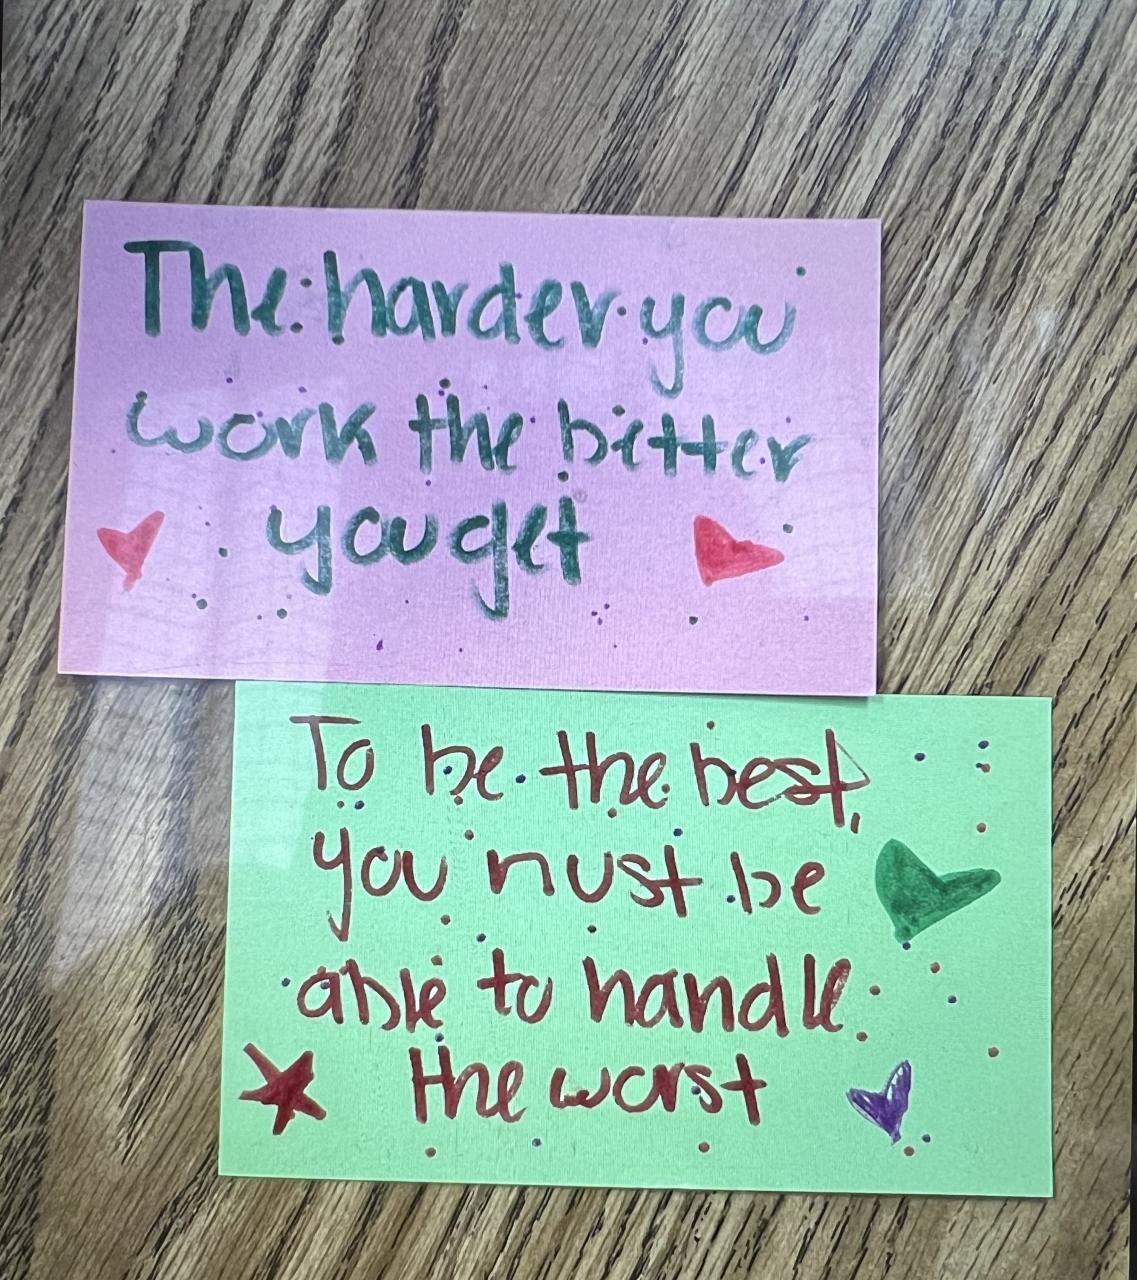 The harder you
work the better
you get
To be the best,
you must be
able to handle
the worst